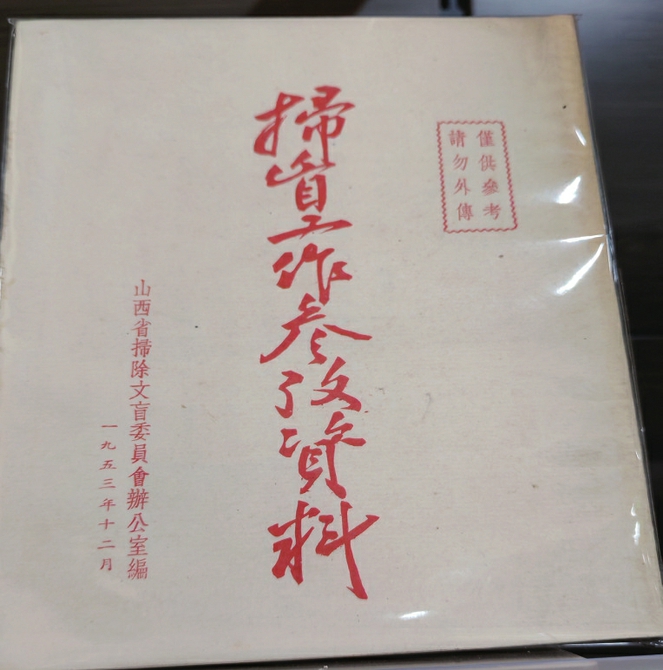 僅供參考
請勿外傳
掃盲工作參攷資料
山西省掃除文盲委員會辦公室編
一九五三年十二月